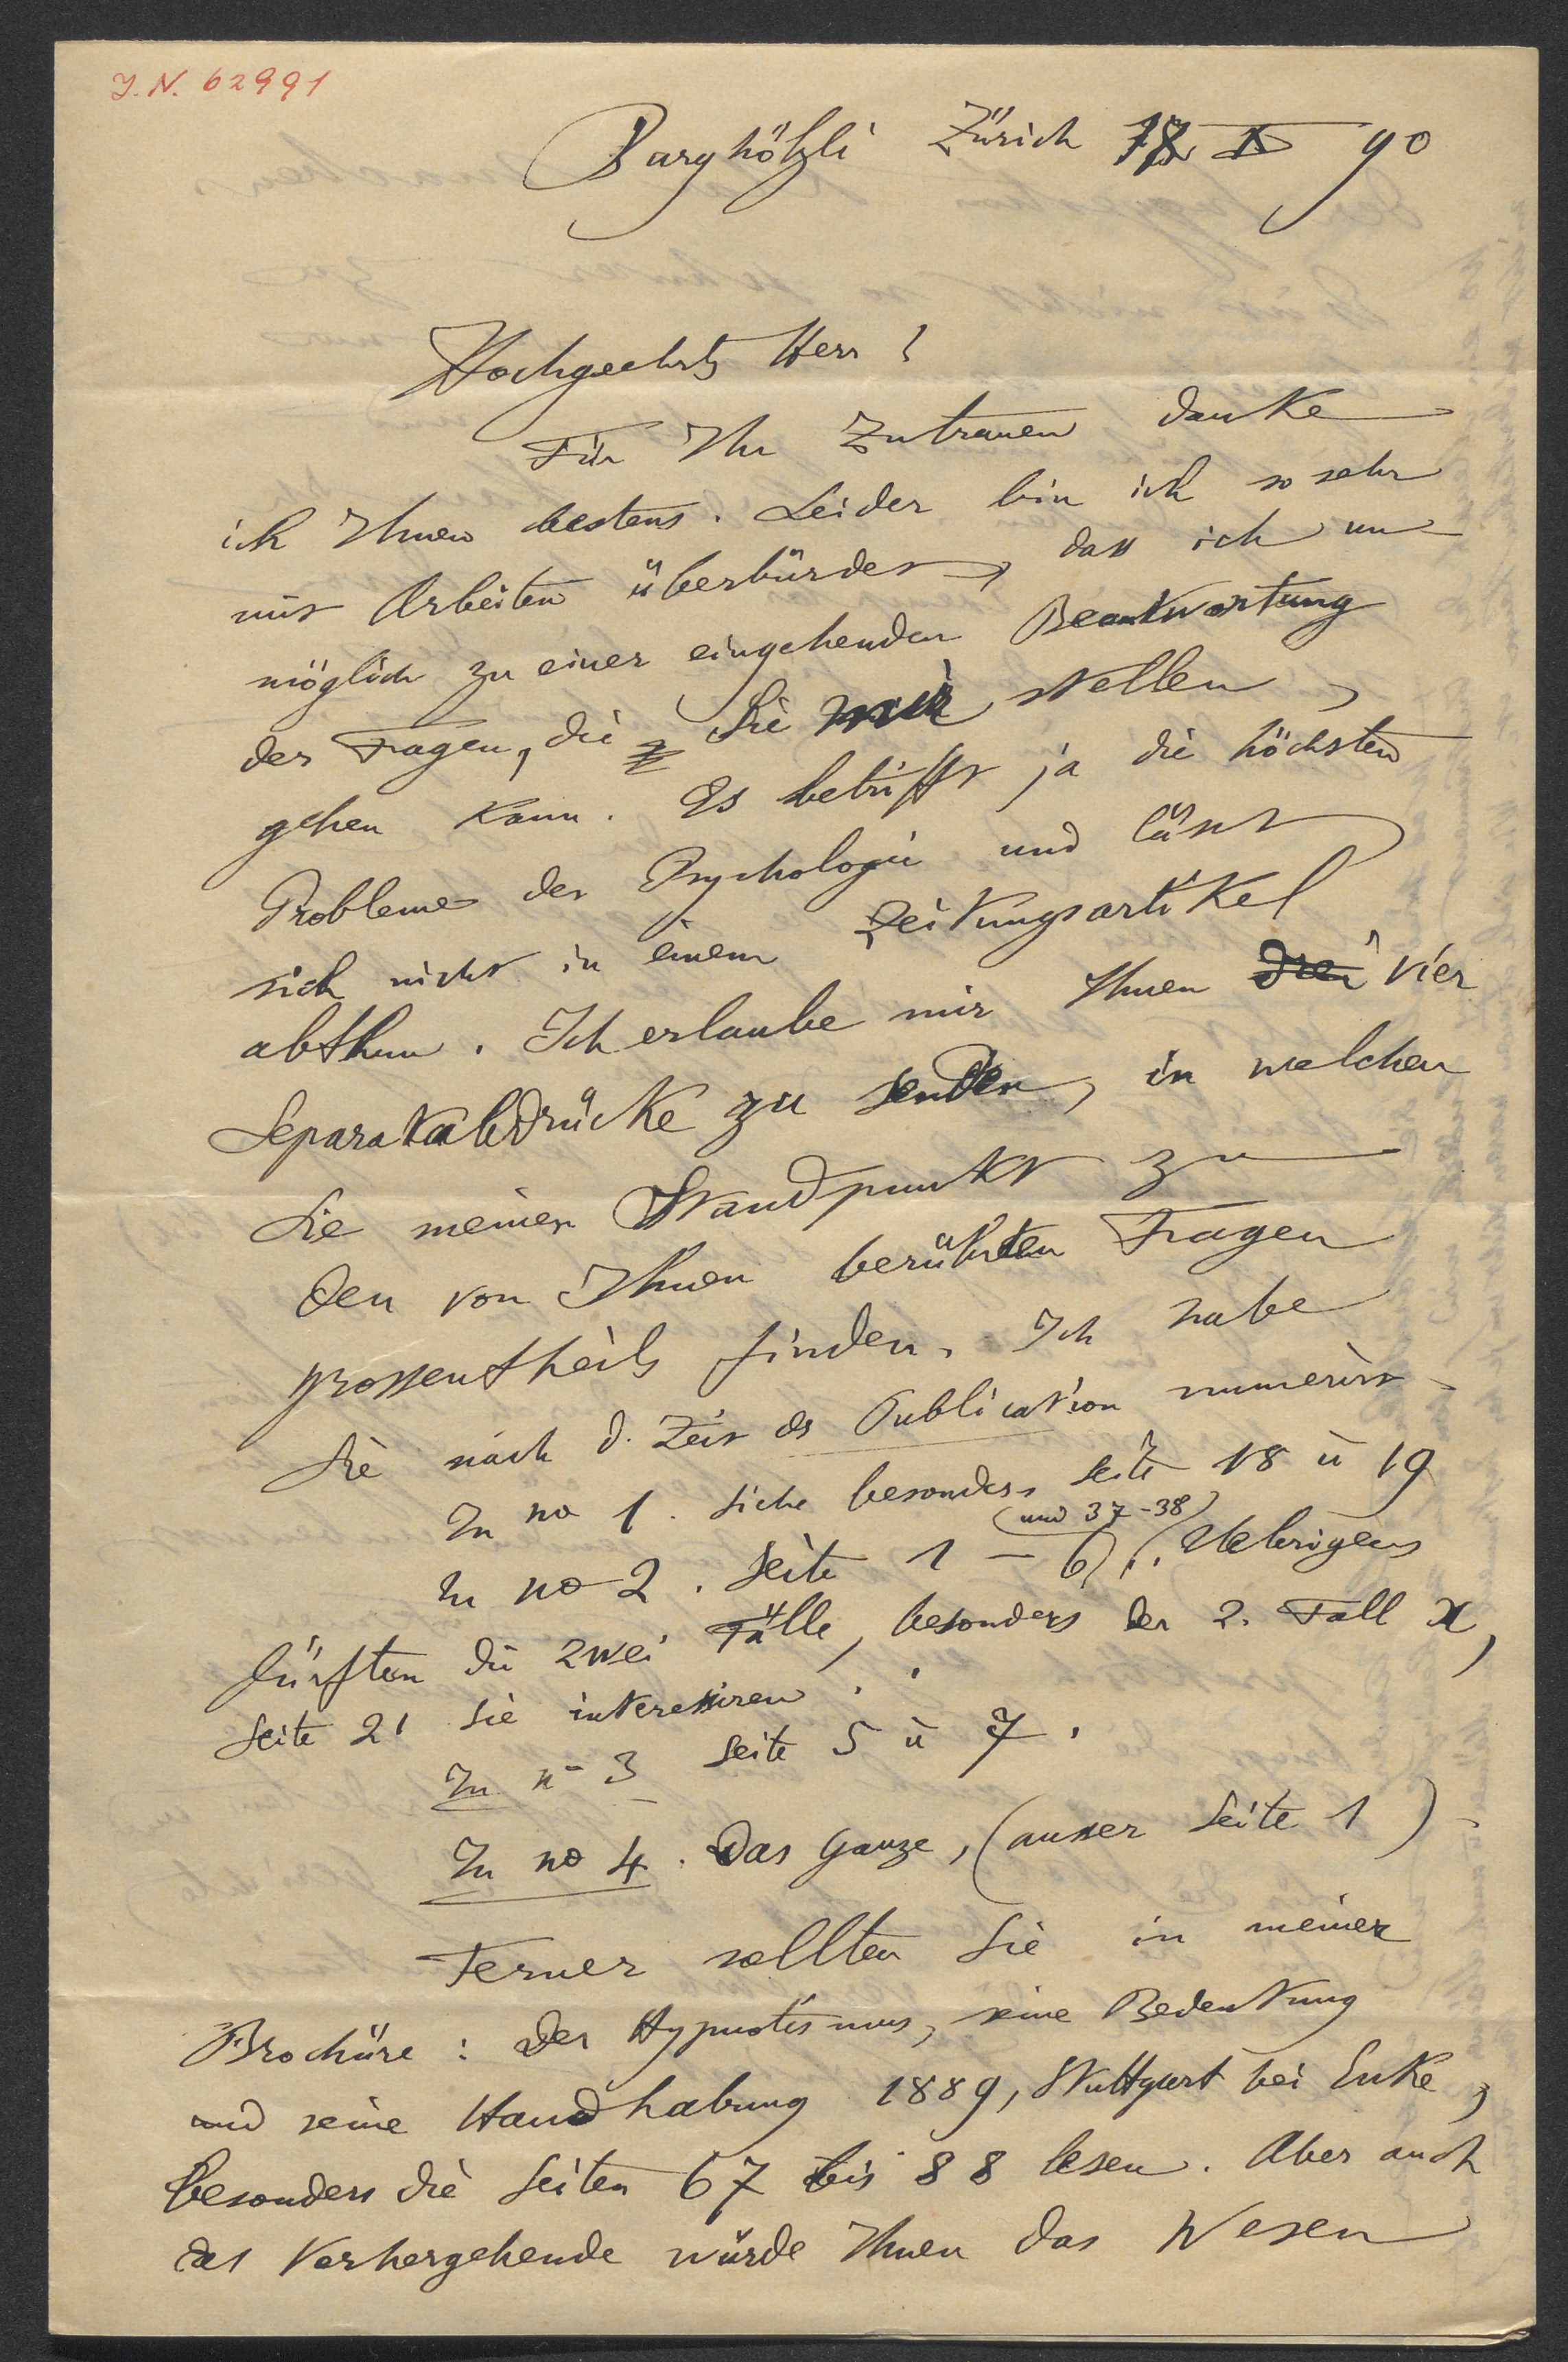 J. N. 62991
Burghölzli Zürich 18 X 90
Hochgeehrter Herr!
Für Ihr Zutrauen danke
ich Ihnen bestens. Leider bin ich so sehr
mit Arbeiten überbürdet, dass ich un
möglich zu einer eingehenden Beantwortung
der Fragen, die Sie mir stellen,
gehen kann. Es betrifft ja die höchsten
Probleme der Psychologie und lässt
sich nicht in einem Zeitungsartikel
abthun. Ich erlaube mir Ihnen drei vier
Separatabdrücke zu senden, in welchen
Sie meinen Standpunkt zu
den von Ihnen berührten Fragen
grossentheils finden. Ich habe
sie nach d. Zeit der Publication numerirt
In no 1. siehe besonders Seite 18 u 19
In no 2. Seite 1 – 6 (und 37-38). Uebrigens
dürften die zwei Fälle, besonders der 2. Fall X,
Seite 21 Sie interessiren.
In no 3 Seite 5 u 7.
In no 4. Das Ganze, (ausser Seite 1)
Ferner sollten Sie in meiner
Brochüre: Der Hypnotismus, seine Bedeutung
und seine Handhabung 1889, Stuttgart bei Enke,
besonders die Seiten 67 bis 88 lesen. Aber auch
das Vorhergehende würde Ihnen das Wesen